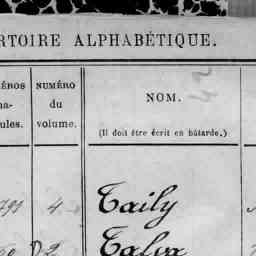 RTOIRE ALPHABÉTIQUE.
ÉROS NUMÉRO
a- du NOM. 42
ules. volume. (Il doit être écrit en bâtarde.)
791 4 Taily
D2 Talva